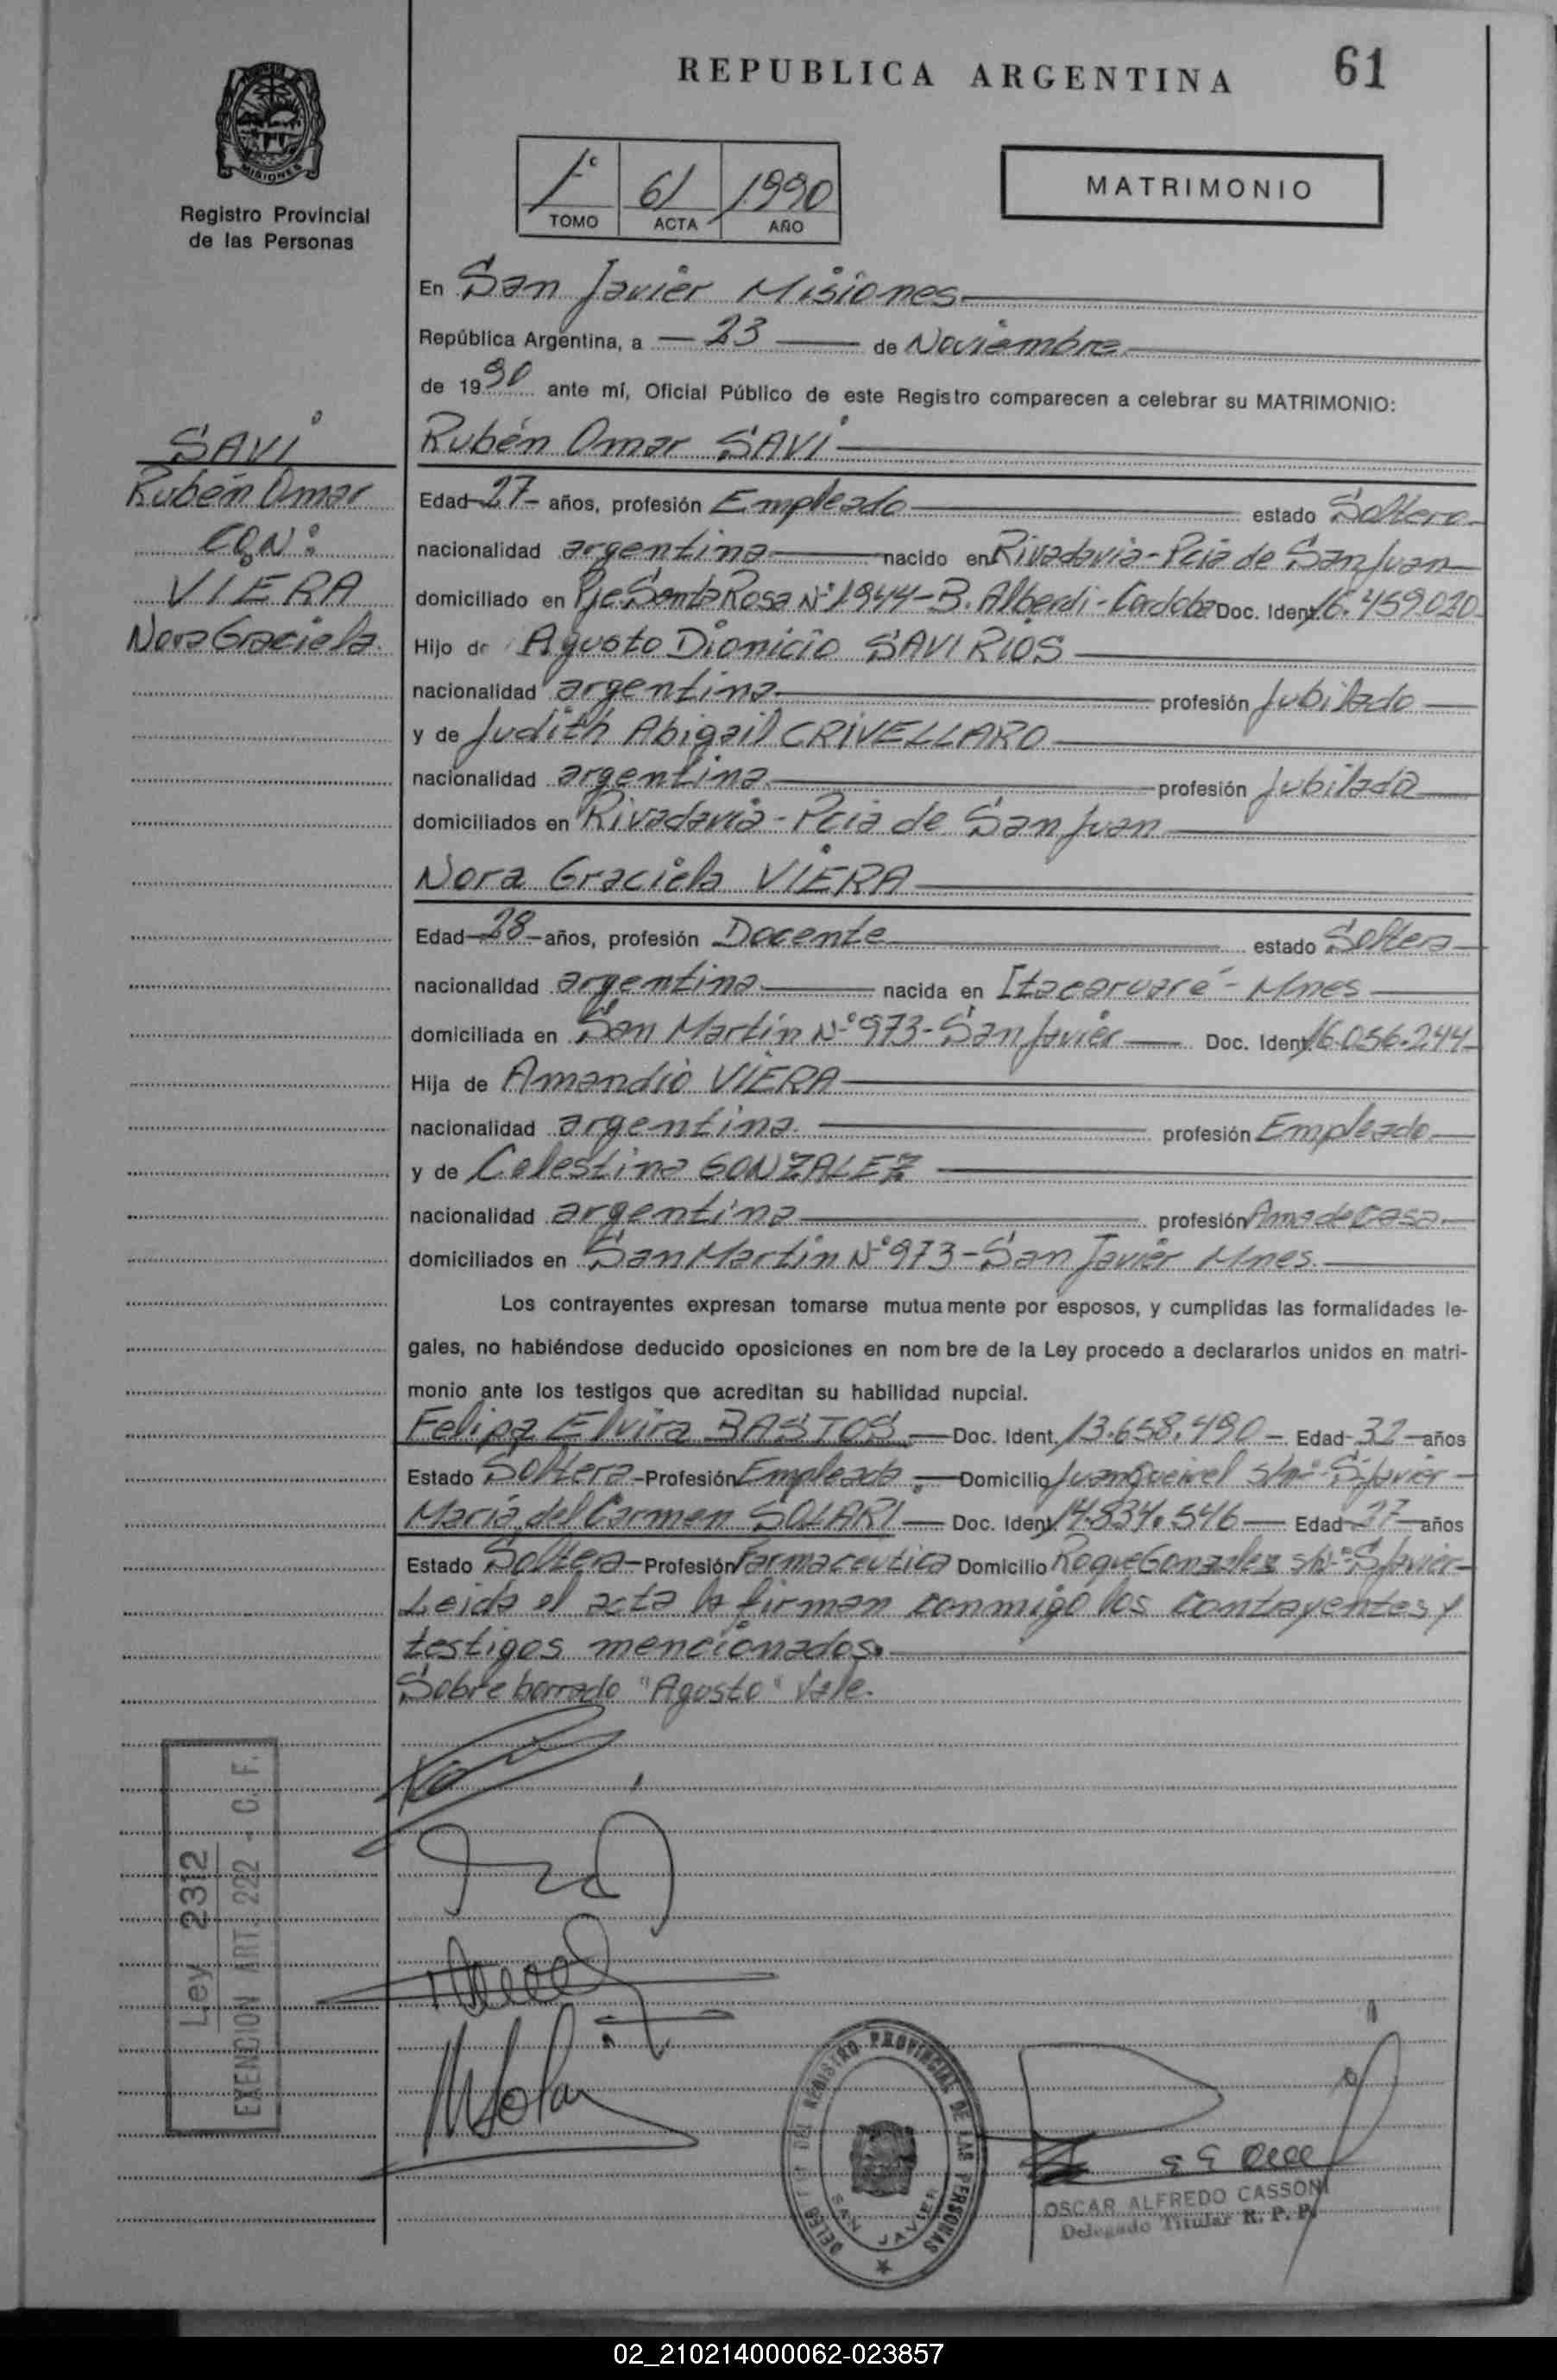 REPUBLICA ARGENTINA 61
MISIONES
Registro Provincial
de las Personas
1º 61 1990
TOMO ACTA AÑO
MATRIMONIO
En San Javier Misiones
República Argentina, a 23 de Noviembre
de 1990 ante mí, Oficial Público de este Registro comparecen a celebrar su MATRIMONIO:
SAVI
Rubén Omar
CON:
VIERA
Nora Graciela
Rubén Omar SAVI
Edad 27 años, profesión Empleado estado Soltero
nacionalidad argentina nacido en Rivadavia - Pcia de San Juan
domiciliado en Pje Santa Rosa Nº 1944 - B. Alberdi - Cordoba Doc. Ident. 16.459.020
Hijo de Agusto Dionicio SAVI RIOS
nacionalidad argentina profesión Jubilado
y de Judith Abigail CRIVELLARO
nacionalidad argentina profesión Jubilada
domiciliados en Rivadavia - Pcia de San Juan
Nora Graciela VIERA
Edad 28 años, profesión Docente estado Soltera
nacionalidad argentina nacida en Itacaruaré - Mnes
domiciliada en San Martín Nº 973 - San Javier Doc. Ident. 16.056.244
Hija de Amandio VIERA
nacionalidad argentina profesión Empleado
y de Celestina GONZALEZ
nacionalidad argentina profesión Ama de casa
domiciliados en San Martín Nº 973 - San Javier Mnes.
Los contrayentes expresan tomarse mutuamente por esposos, y cumplidas las formalidades le-
gales, no habiéndose deducido oposiciones en nombre de la Ley procedo a declararlos unidos en matri-
monio ante los testigos que acreditan su habilidad nupcial.
Felipa Elvira BASTOS Doc. Ident. 13.658.490 Edad 32 años
Estado Soltera Profesión Empleada Domicilio Juan Queirel s/nº S. Javier
María del Carmen SOLARI Doc. Ident. 14.834.546 Edad 27 años
Estado Soltera Profesión Farmaceutica Domicilio Roque Gonzalez s/nº S. Javier
Leida el acta la firman conmigo los contrayentes y
testigos mencionados.
Sobre borrado "Agusto" Vale.
Ley 2312
EXENCION ART. 222 - C.F.
REGISTRO PROVINCIAL DE LAS PERSONAS
SAN JAVIER
OSCAR ALFREDO CASSONI
Delegado Titular R. P. P.
02_210214000062-023857